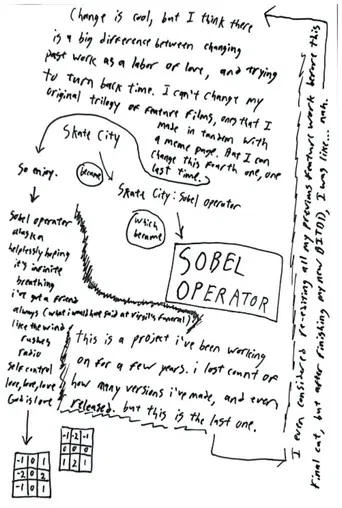 Change is cool, but I think there
is a big difference between changing
past work as a labor of love, and trying
to turn back time. I can't change my
original trilogy of feature films, ones that I
made in tandem with
a meme page. But I can
change this fourth one, one
last time.
Skate City
became
Skate City: Sobel operator
which
became
SOBEL
OPERATOR
So enjoy.
Sobel operator
alaska
helplessly hoping
it's infinite
breathing
i've got a friend
always (what i would have said at virgil's funeral)
like the wind
rushes
radio
self control
love, love, love
God is love
-1 0 1
-2 0 2
-1 0 1
-1 -2 -1
0 0 0
1 2 1
this is a project i've been working
on for a few years. i lost count of
how many versions i've made, and even
released. but this is the last one.
I even considered re-editing all my previous feature work before this
final cut, but after finishing my new B(TOJ), I was like... nah.